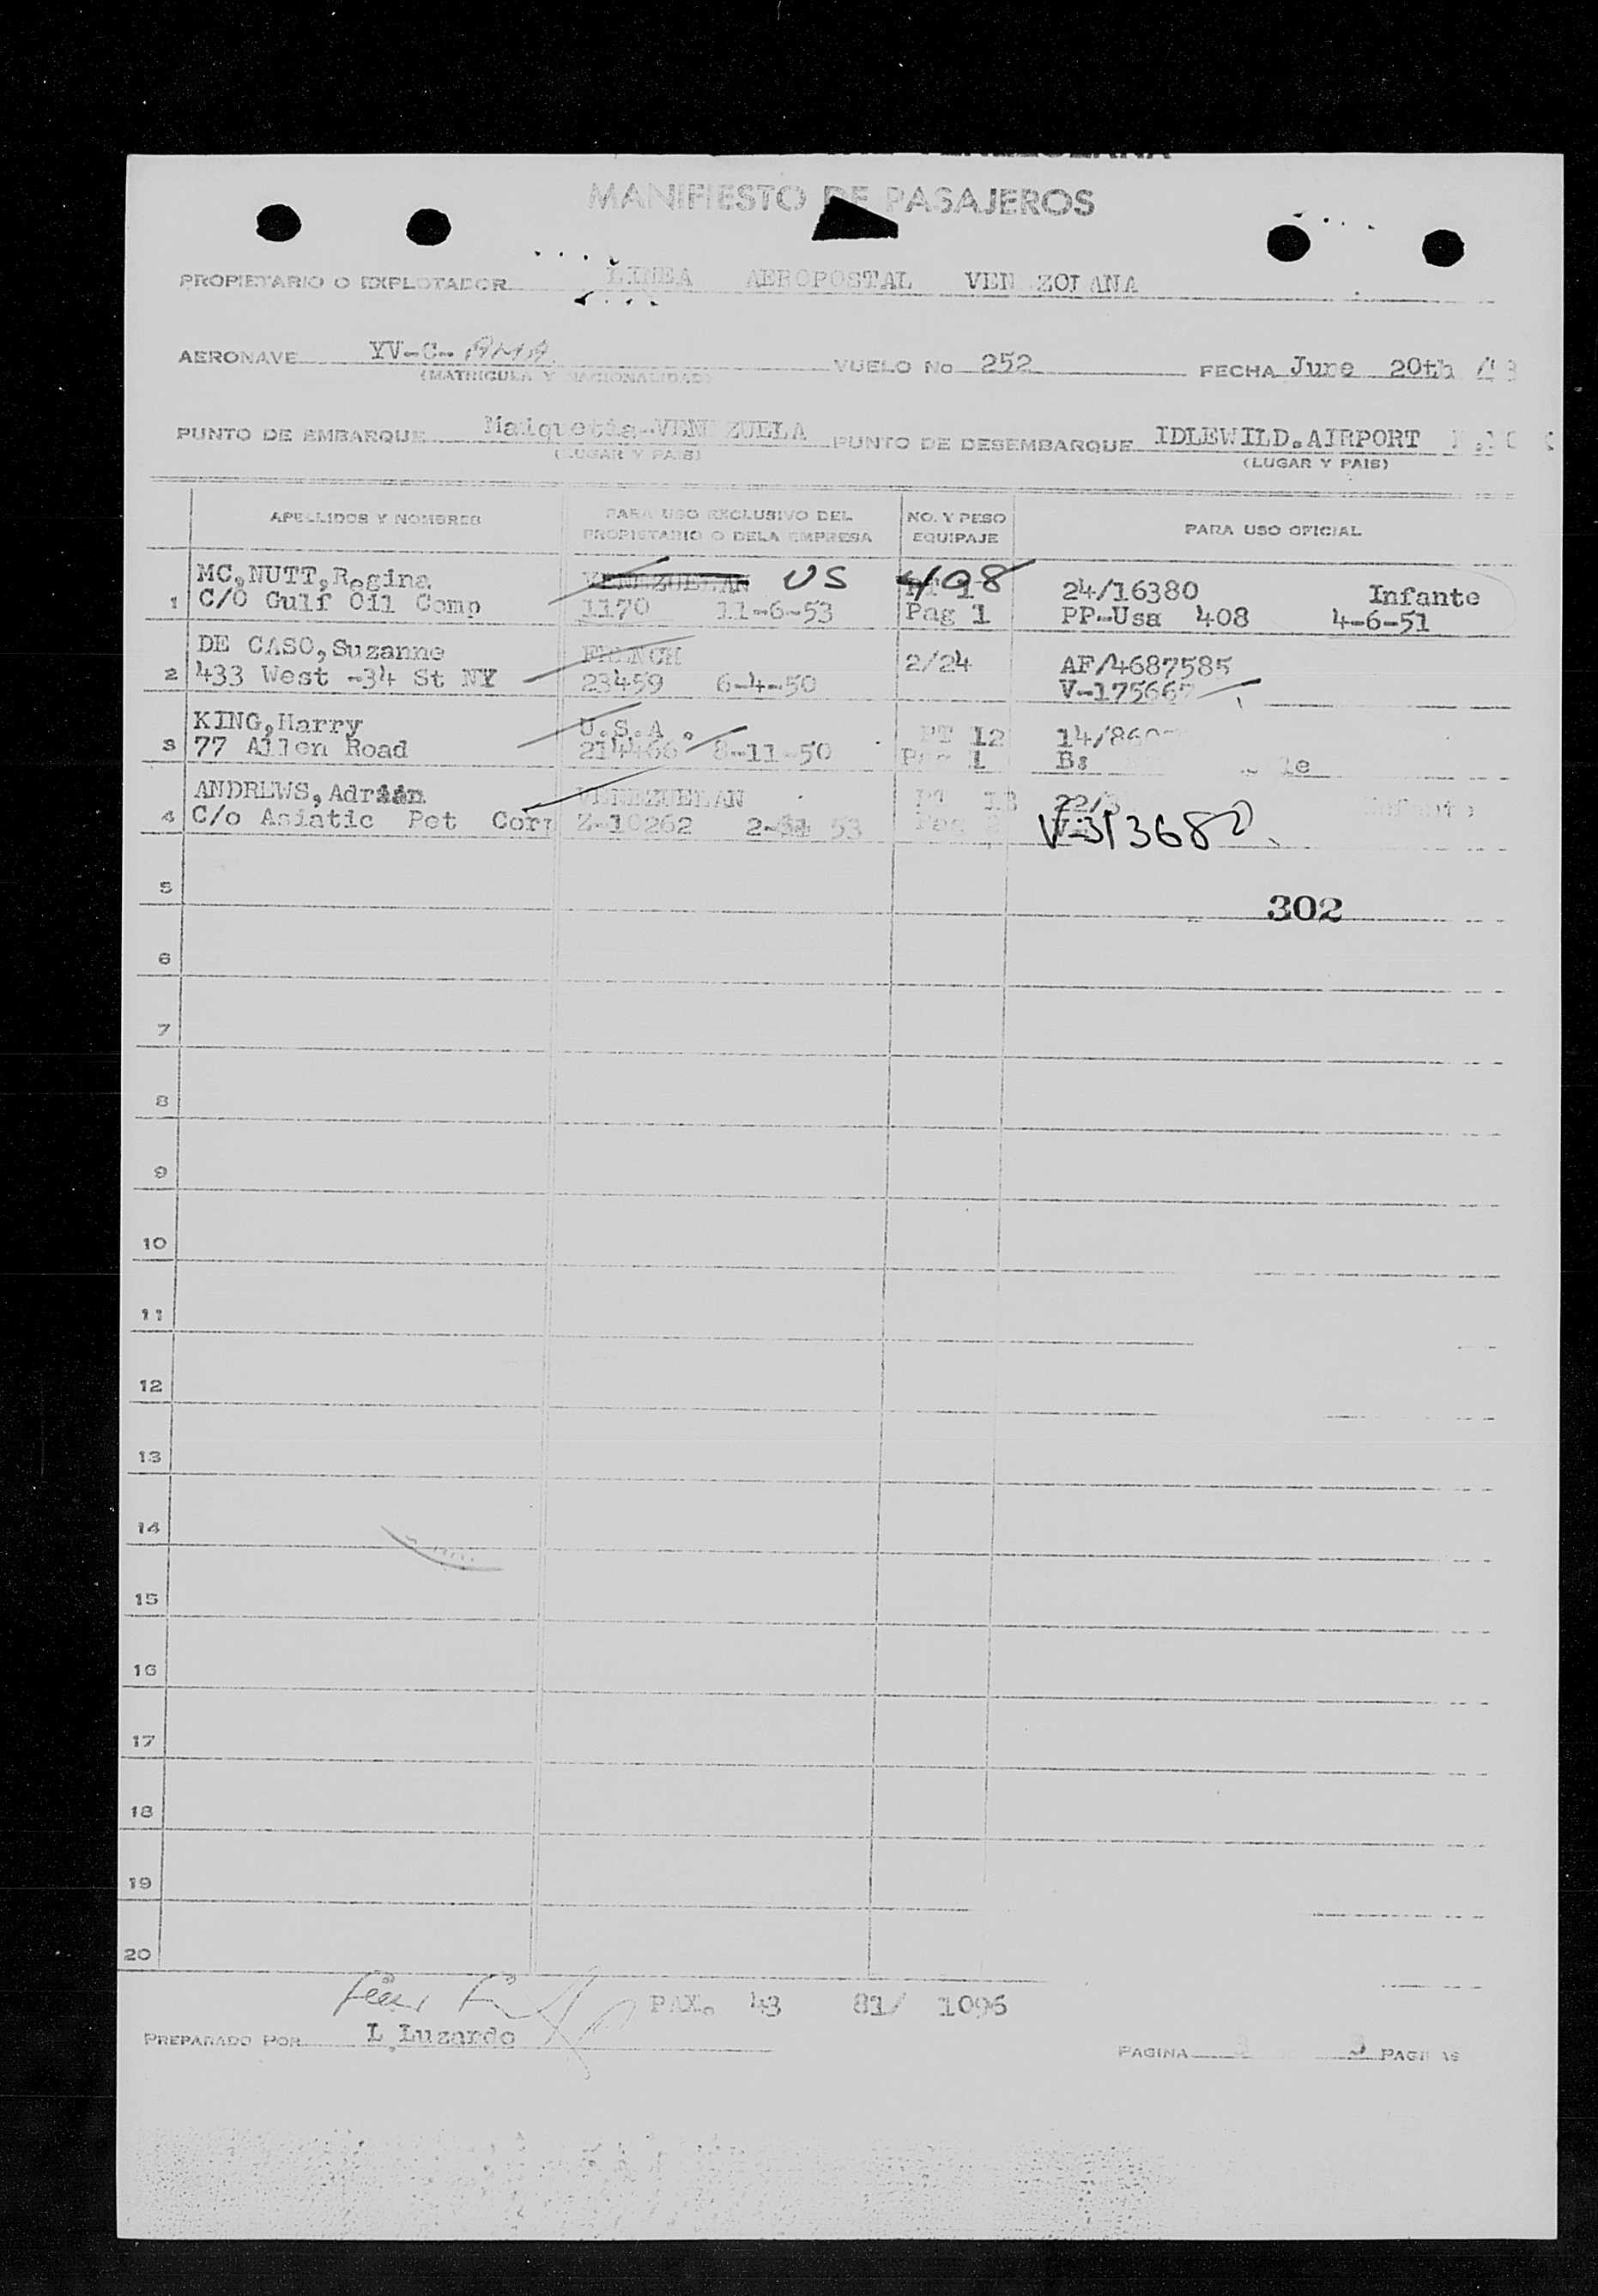 MANIFIESTO DE PASAJEROS
PROPIETARIO O EXPLOTADOR LINEA AEROPOSTAL VEN ZOLANA
AERONAVE YV-C- AMA VUELO No 252 FECHA June 20th
(MATRICULA Y NACIONALIDAD)
PUNTO DE EMBARQUE Maiquetia-VENEZUELA PUNTO DE DESEMBARQUE IDLEWILD.AIRPORT
(LUGAR Y PAIS) (LUGAR Y PAIS)
APELLIDOS Y NOMBRES PARA USO EXCLUSIVO DEL PROPIETARIO O DE LA EMPRESA NO. Y PESO EQUIPAJE PARA USO OFICIAL
MC,NUTT,Regina VENEZUELAN US 408 24/16380 Infante
1 C/O Gulf Oil Comp 1170 11-6-53 Pag 1 PP-Usa 408 4-6-51
DE CASO,Suzanne FRENCH 2/24 AF/4687585
2 433 West -34 St NY 23459 6-4-50 V-175667
KING,Harry U.S.A. PT 12
3 77 Allen Road 214466 8-11-50 Pag 1
ANDREWS,Adrián VENEZUELAN PT 13 Infante
4 C/o Asiatic Pet Corp Z-10262 53 Pag V-313680
5
302
6
7
8
9
10
11
12
13
14
15
16
17
18
19
20
PAX. 43 81/ 1096
PREPARADO POR L.Luzardo PAGINA 3 3 PAGINAS